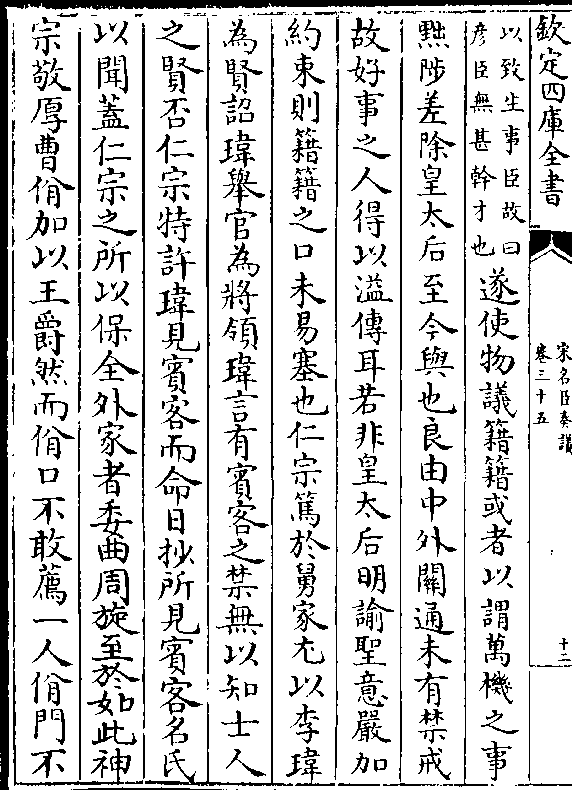 欽定四庫全書
宋名臣奏議
卷三十五
十二
以致生事臣故曰
彦臣無甚幹才也
遂使物議籍籍或者以謂萬機之事
黜陟差除皇太后至今與也良由中外闗通未有禁戒
故好事之人得以溢傳耳若非皇太后明諭聖意嚴加
約束則籍籍之口未易塞也仁宗篤於舅家尤以李瑋
為賢詔瑋舉官為將領瑋言有賓客之禁無以知士人
之賢否仁宗特許瑋見賓客而命日抄所見賓客名氏
以聞蓋仁宗之所以保全外家者委曲周旋至於如此神
宗敬厚曹佾加以王爵然而佾口不敢薦一人佾門不